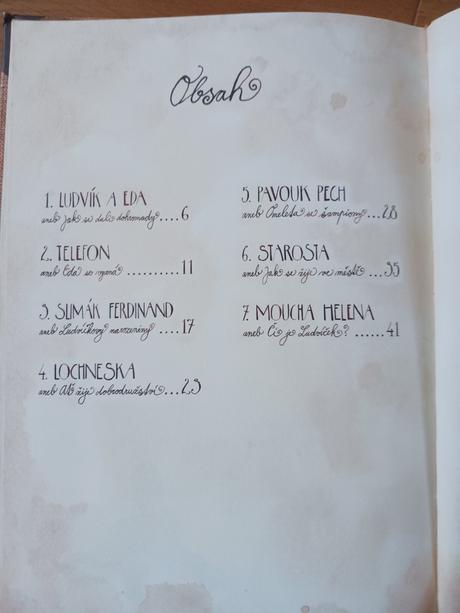 Obsah
1. LUDVÍK A EDA
aneb Jak se dali dohromady....6
2. TELEFON
aneb Eda se nezdá..........11
3. SLIMÁK FERDINAND
aneb Ludvíkovy narozeniny....17
4. LOCHNESKA
aneb Ať žije dobrodružství...23
5. PAVOUK PECH
aneb se šampiony...28
6. STAROSTA
aneb Jak se žije ve městě...35
7. MOUCHA HELENA
aneb Čí je Ludvíček?......41